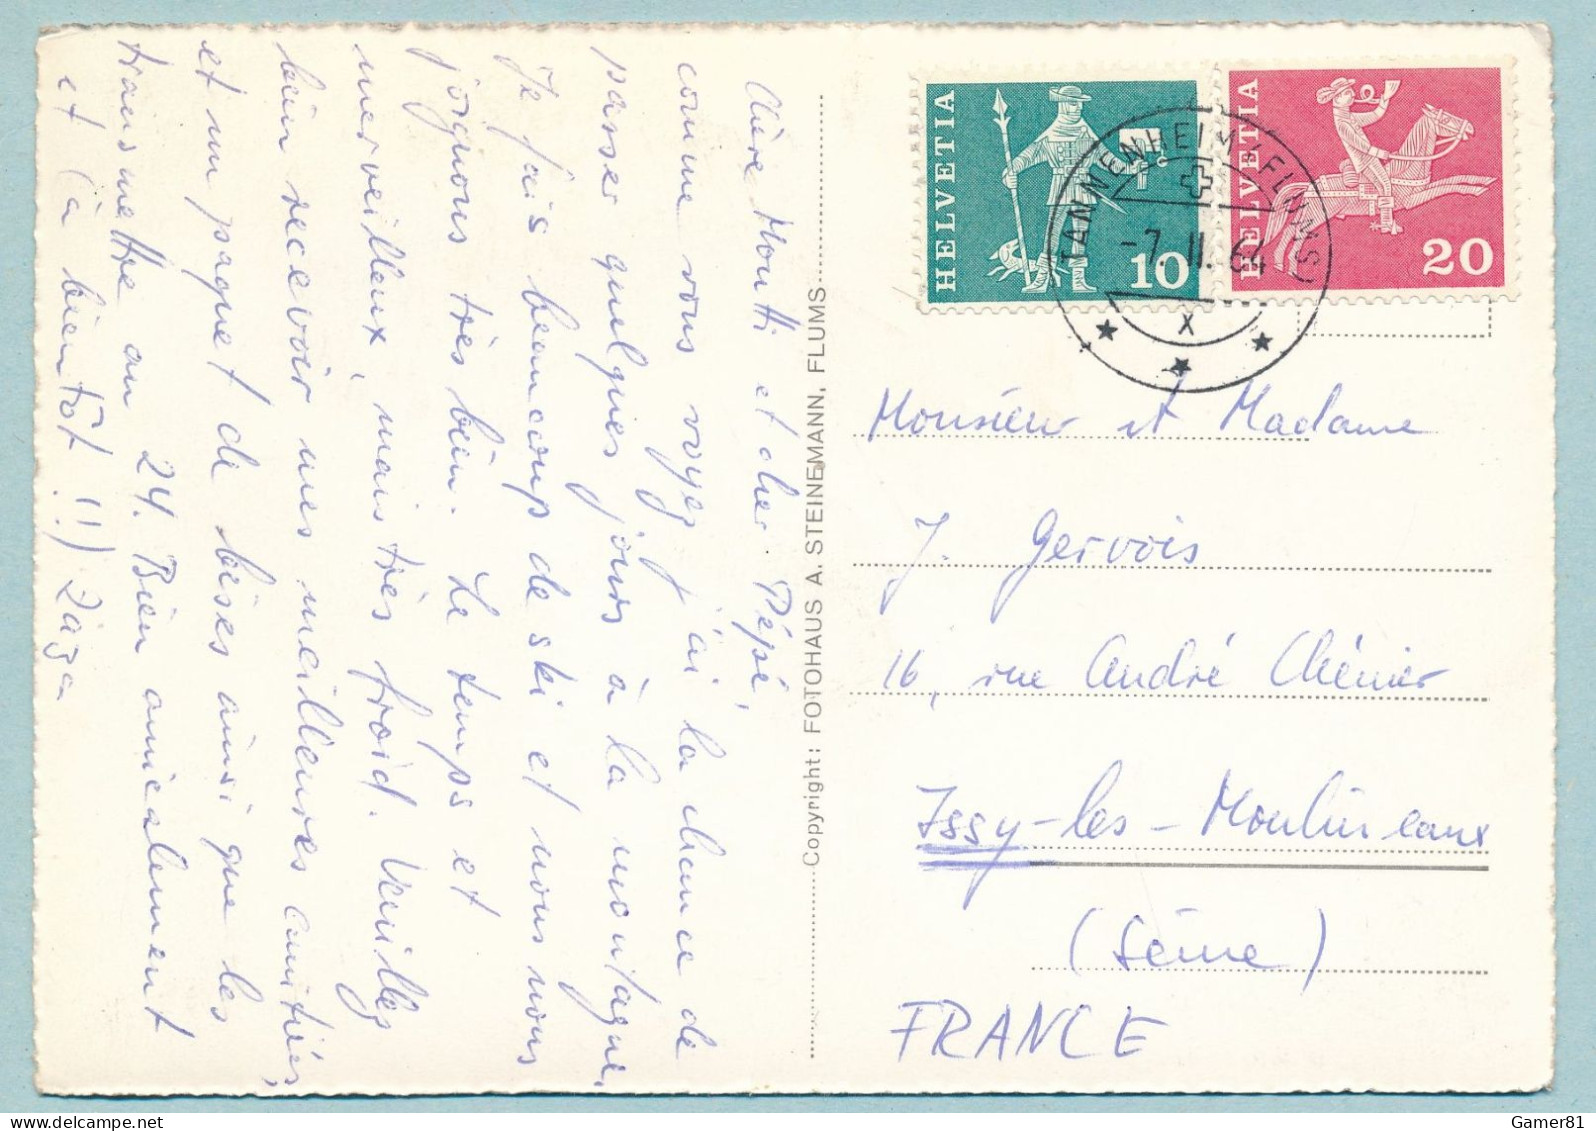 Chère Moutti et cher Pépé,
comme vous voyez j'ai la chance de
passer quelques jours à la montagne.
Je fais beaucoup de ski et nous nous
joquons très bien. Le temps et
merveilleux, mais très froid. Veuillez
bien recevoir mes meilleures amitiés,
et un paquet de bises ainsi que les
transmettre au 24. Bien amicalement
et (à bientôt !!)
Copyright: FOTOHAUS A. STEINEMANN, FLUMS
HELVETIA
10
HELVETIA
20
TANNENHEIM (FLUMS)
-7.II.64
X
Monsieur et Madame
J. Gervois
16, rue André Chénier
Issy-les-Moulineaux
(Seine)
FRANCE
Gamer81